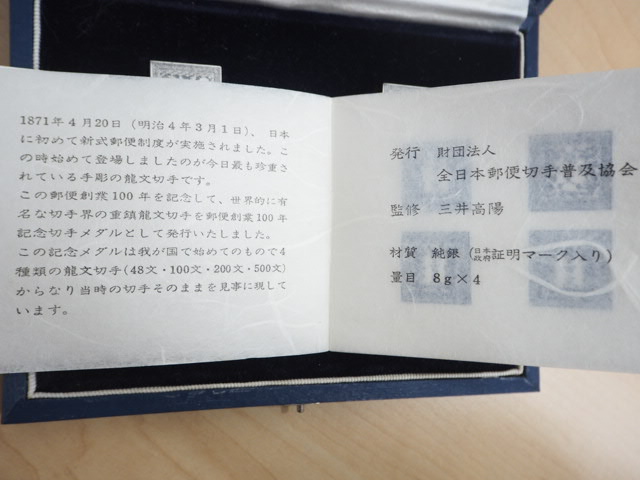 1871年4月20日（明治4年3月1日）、日本
に初めて新式郵便制度が実施されました。こ
の時始めて登場しましたのが今日最も珍重さ
れている手彫の龍文切手です。
この郵便創業100年を記念して、世界的に有
名な切手界の重鎮龍文切手を郵便創業100年
記念切手メダルとして発行いたしました。
この記念メダルは我が国で始めてのもので4
種類の龍文切手(48文・100文・200文・500文)
からなり当時の切手そのままを見事に現して
います。
発行　財団法人
全日本郵便切手普及協会
監修　三井高陽
材質　純銀（日本政府証明マーク入り）
量目　8g×4